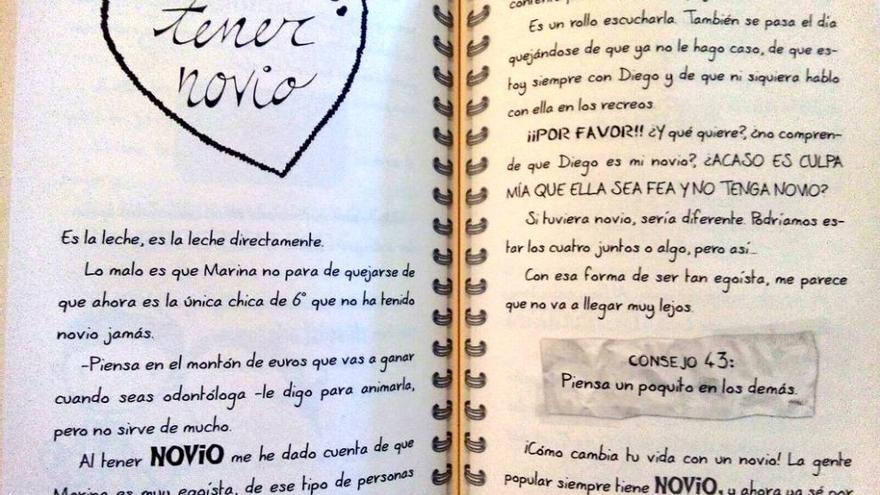 tener
novio
Es la leche, es la leche directamente.
Lo malo es que Marina no para de quejarse de
que ahora es la única chica de 6º que no ha tenido
novio jamás.
-Piensa en el montón de euros que vas a ganar
cuando seas odontóloga -le digo para animarla,
pero no sirve de mucho.
Al tener NOViO me he dado cuenta de que
Marina es muy egoísta, de ese tipo de personas
Es un rollo escucharla. También se pasa el día
quejándose de que ya no le hago caso, de que es-
toy siempre con Diego y de que ni siquiera hablo
con ella en los recreos.
¡¡POR FAVOR!! ¿Y qué quiere?, ¿no compren-
de que Diego es mi novio?, ¿ACASO ES CULPA
MÍA QUE ELLA SEA FEA Y NO TENGA NOVIO?
Si tuviera novio, sería diferente. Podríamos es-
tar los cuatro juntos o algo, pero así...
Con esa forma de ser tan egoísta, me parece
que no va a llegar muy lejos.
CONSEJO 43:
Piensa un poquito en los demás.
¡Cómo cambia tu vida con un novio! La gente
popular siempre tiene NOViO, y ahora ya sé por